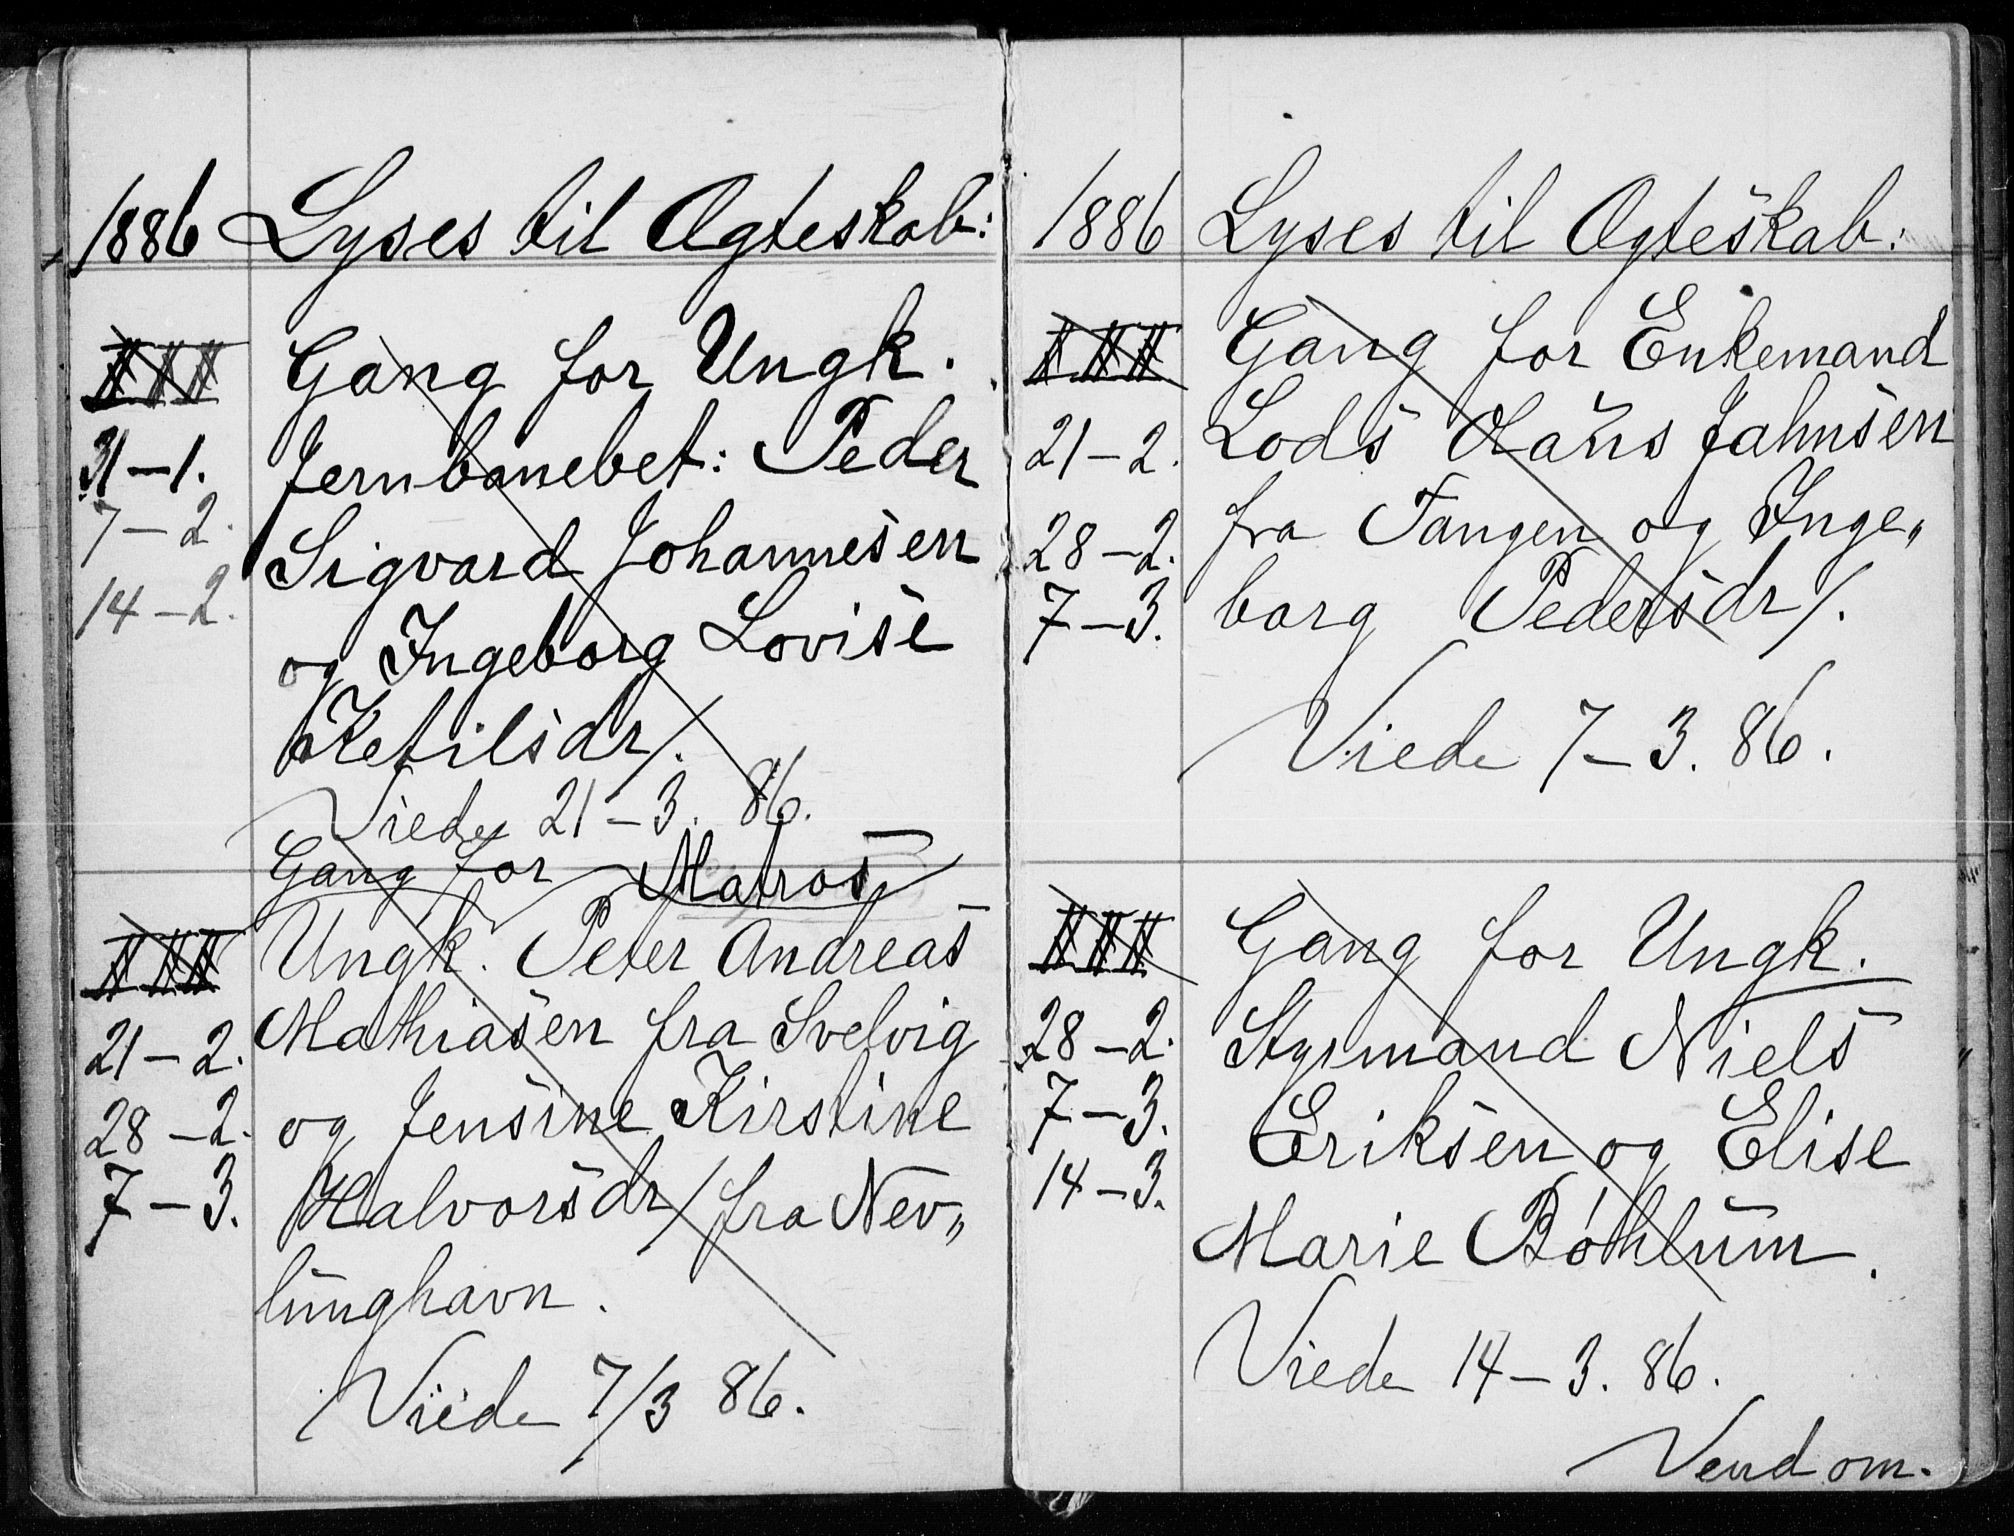 1886 Lyses til Ægteskab:
Gang for Ungk.
31-1. Jernbanebet: Peder
7-2. Sigvard Johannesen
14-2. og Ingeborg Lovise
Ketilsdr/.
Viede 21-3. 86.
Gang for Matros
Ungk. Peter Andreas
21-2. Mathiasen fra Svelvig
28-2. og Jensine Kirstine
7-3. Halvorsdr/ fra Nev„
lunghavn.
Viede 7/3 86.
1886 Lyses til Ægteskab:
Gang for Enkemand
21-2. Lods Hans Jahnsen
28-2. fra Tangen og Inge„
7-3. borg Pedersdr/.
Viede 7-3. 86.
Gang for Ungk.
28-2. Styrmand Niels
7-3. Eriksen og Elise
14-3. Marie Bøhlum.
Viede 14-3. 86.
Vend om.